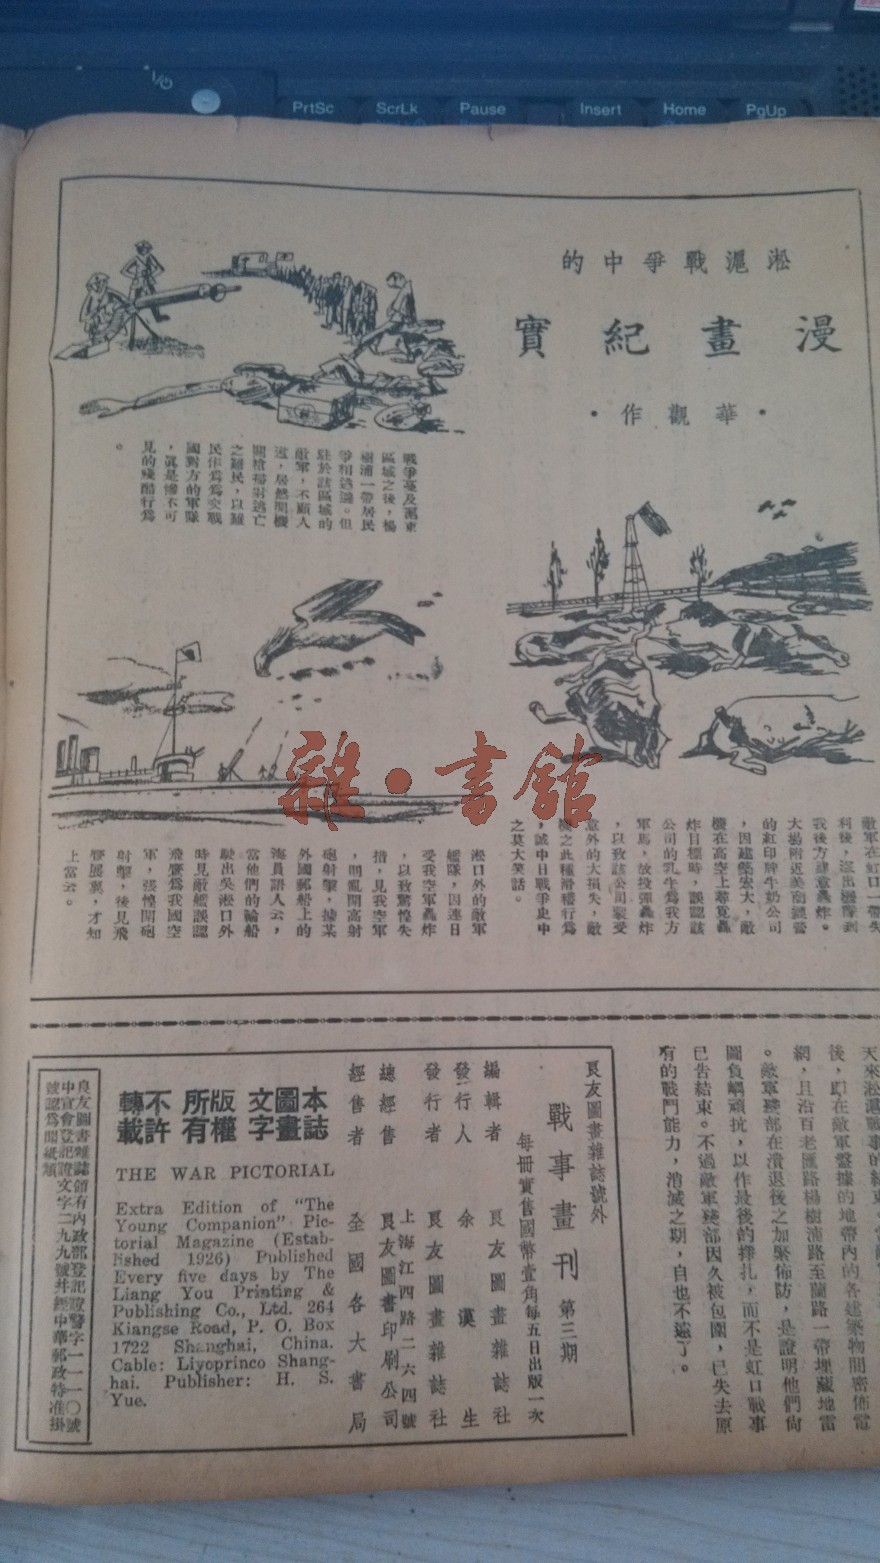 PrtSc
ScrLk
Pause
Insert
Home
PgUp
淞滬戰爭中的
漫畫紀實
·華觀作·
戰爭蔓及滬東
區域之後，楊
樹浦一帶居民
爭相逃避。但
駐於該區域的
敵軍，不顧人
道，居然開機
關槍掃射逃亡
之難民，以難
民作為為交戰
國對方的軍隊
，眞是慘不可
見的殘酷行爲
。
敵軍在虹口一帶失
利後，派出機隊到
我後方肆意轟炸。
大場附近美商經營
的紅印牌牛奶公司
，因建築宏大，敵
機在高空上尋覓轟
炸目標時，誤認該
公司的乳牛爲我方
軍馬，故投彈轟炸
，以致該公司蒙受
意外的大損失，敵
機之此種滑稽行爲
，誠中日戰爭史中
之莫大笑話。
淞口外的敵軍
艦隊，因連日
受我空軍轟炸
，以致驚惶失
措，見我空軍
，則亂開高射
砲射擊，據某
外國郵船上的
海員語人云，
當他們的輪船
駛出吳淞口外
時見敵艦誤認
飛鷹爲我國空
軍，張惶開砲
射擊，後見飛
鷹展翼，才知
上當云。
雜·書館
後，卽在敵軍盤據的地帶內的各建築物間密佈電
網，且沿百老匯路楊樹浦路至蘭路一帶埋藏地雷
。敵軍殘部在潰退後之加緊佈防，是證明他們尙
圖負嵎頑抗，以作最後的掙扎，而不是虹口戰事
已告結束。不過敵軍殘部因久被包圍，已失去原
有的戰鬥能力，消滅之期，自也不遠了。
良友圖畫雜誌號外
戰事畫刊 第三期
每冊實售國幣壹角每五日出版一次
編輯者 良友圖畫雜誌社
發行人 余漢生
發行者 良友圖畫雜誌社
上海江四路二六四號
總經售 良友圖書印刷公司
經售者 全國各大書局
本誌圖畫文字版權所有不許轉載
THE WAR PICTORIAL
Extra Edition of "The
Young Companion" Pic-
torial Magazine (Estab-
lished 1926) Published
Every five days by The
Liang You Printing &
Publishing Co., Ltd. 264
Kiangse Road, P. O. Box
1722 Shanghai, China.
Cable: Liyoprinco Shang-
hai. Publisher: H. S.
Yue.
良友圖書雜誌領有內政部登記證警字一一一〇號
中宣會登記證文字二九九號並經中華郵政特准掛
號認爲新聞紙類